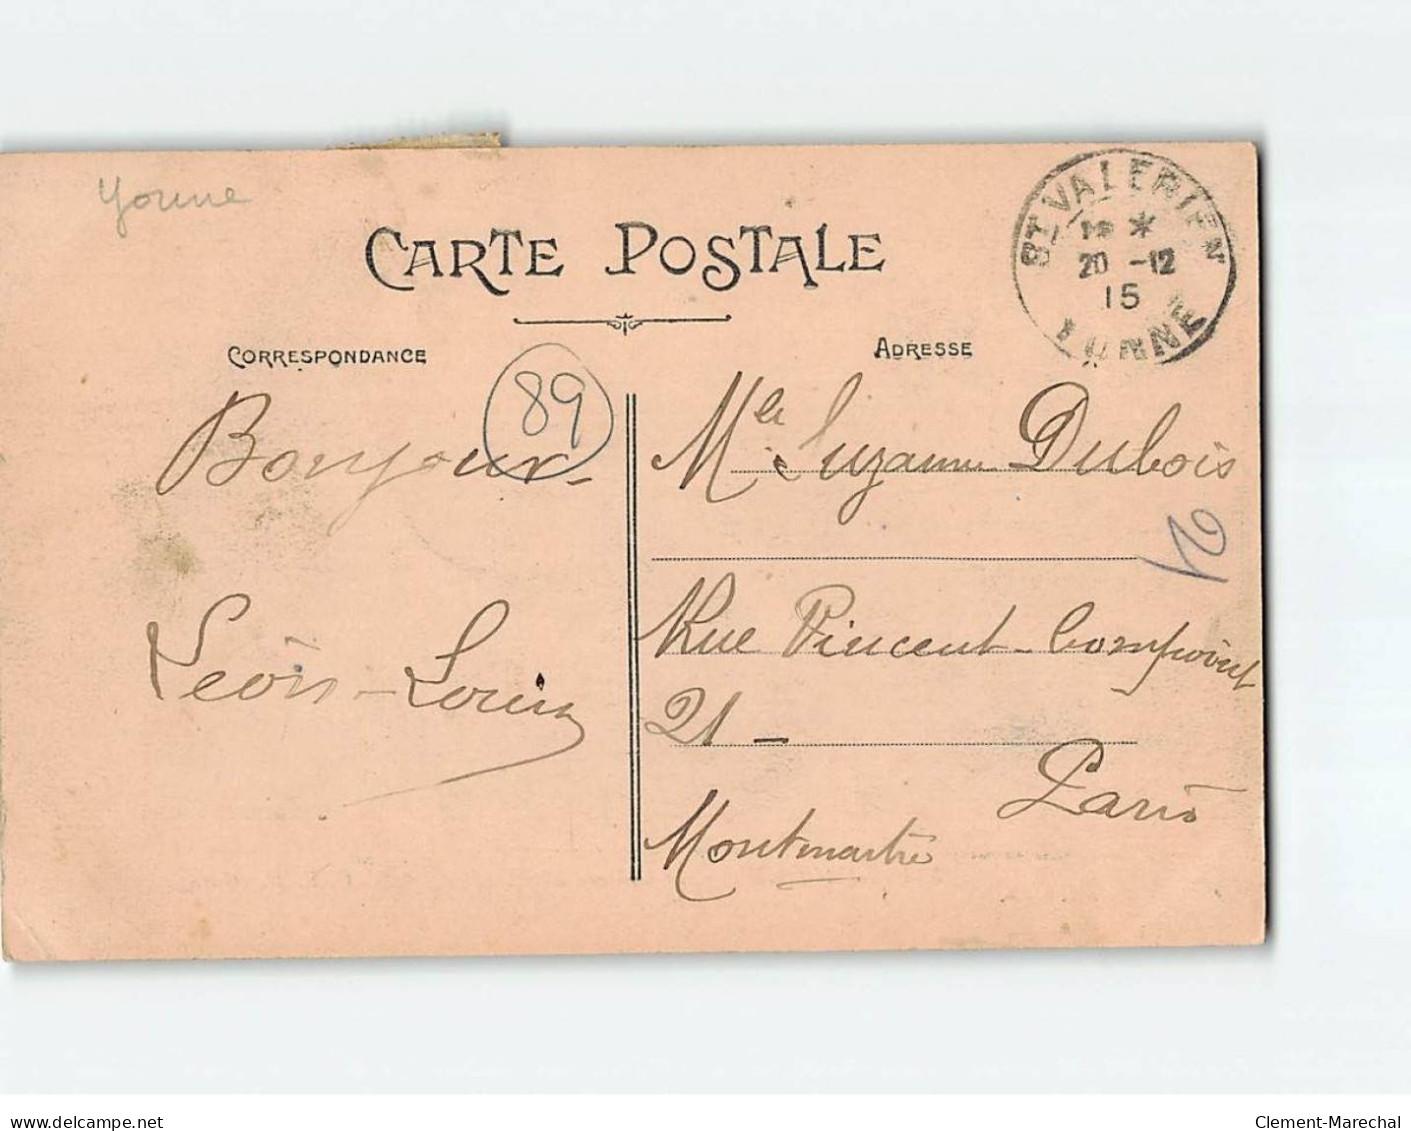 Yonne
CARTE POSTALE
ST VALERIEN
20 -12
15
YONNE
CORRESPONDANCE
ADRESSE
89
Bonjour
Mle Suzanne Dubois
12
Rue Vincent-Compoint
21 -
Paris
Montmartre
delcampe.net
Clement-Marechal